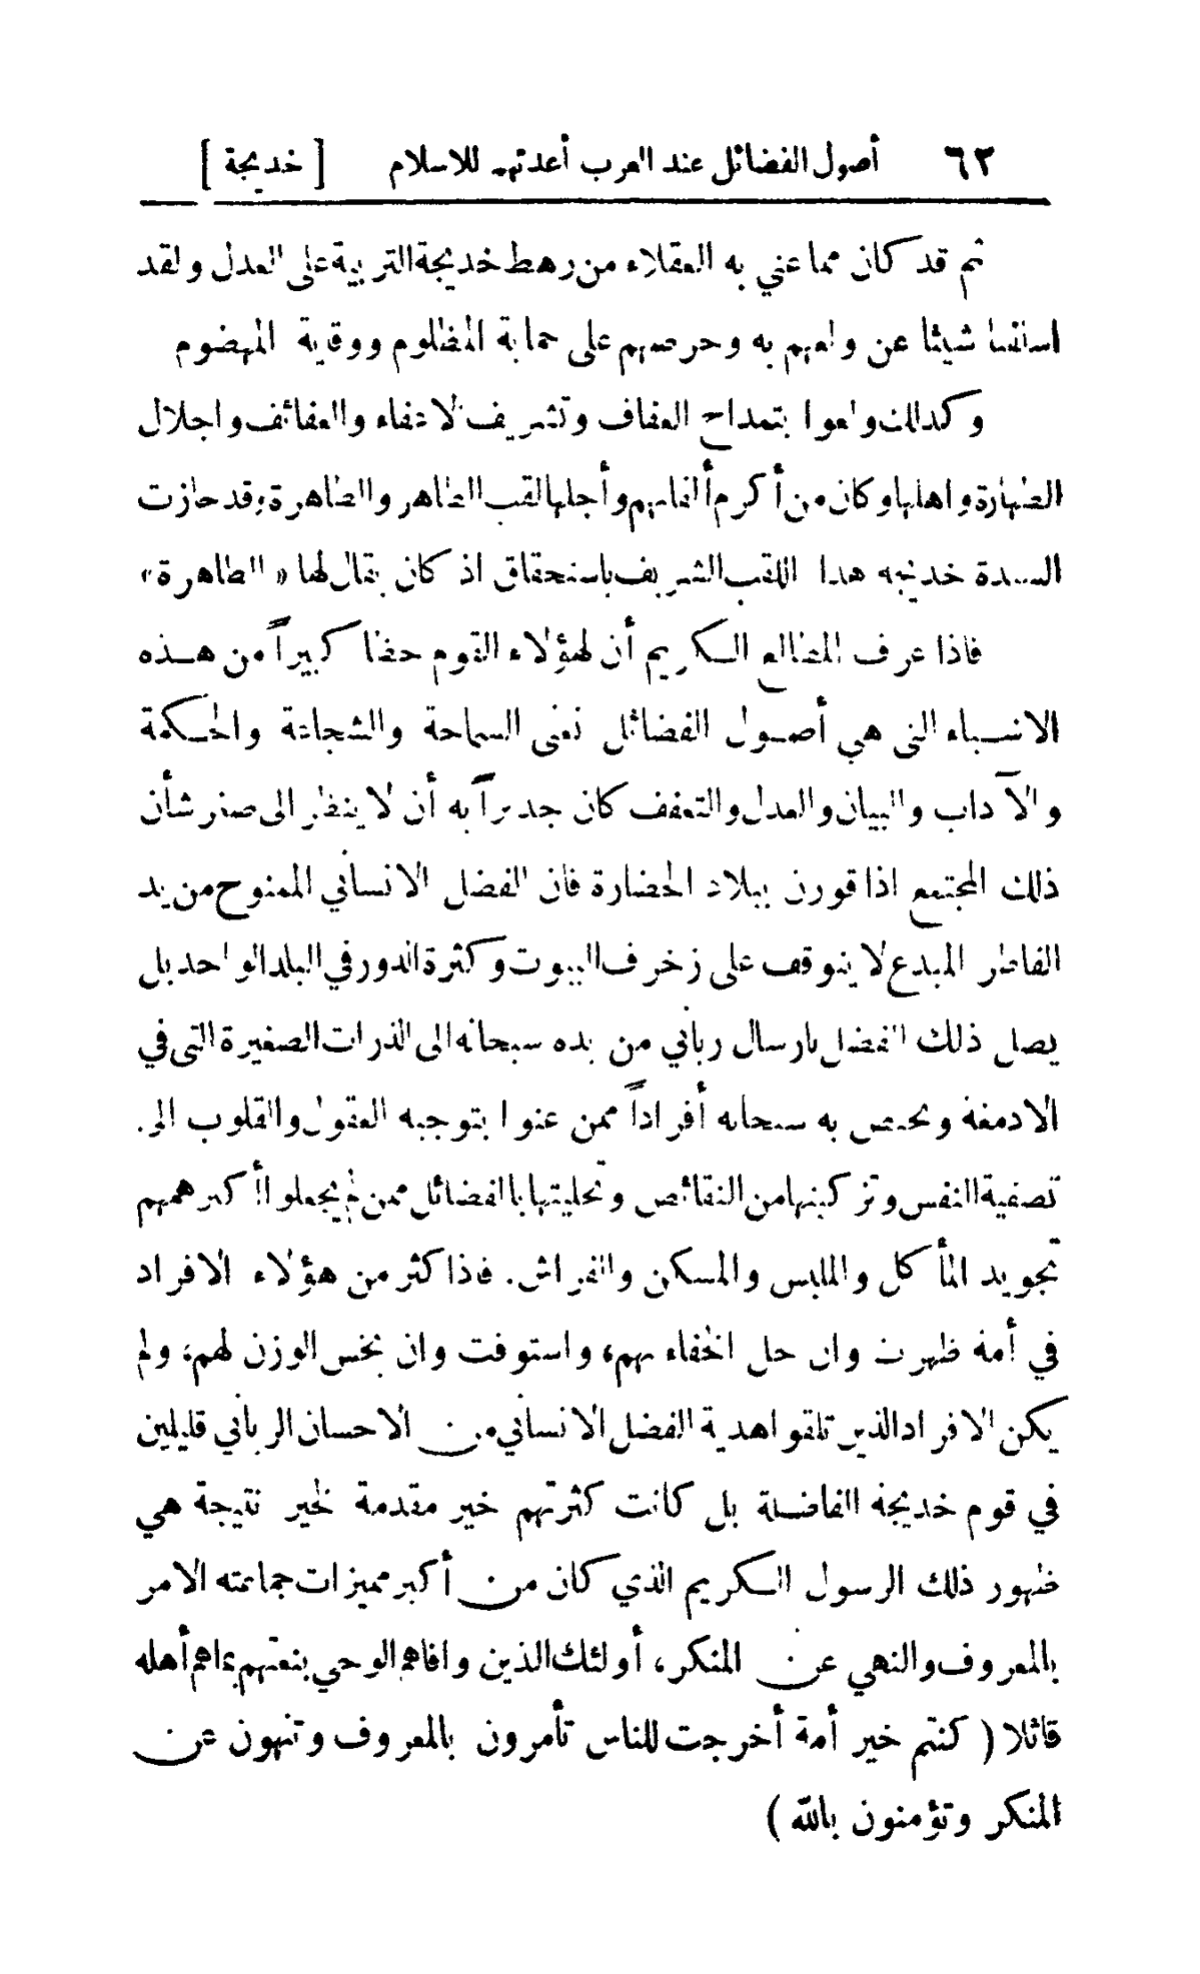 ٦٢ أصول الفضائل عند العرب أعدتهم للاسلام [ خديجة ]
ثم قد كان مما عني به العقلاء من رهط خديجة التربية على العدل ولقد
اسلفنا شيئا عن ولعهم به وحرصهم على حماية المظلوم ووقاية المهضوم
وكذلك ولعوا بتمداح العفاف وتشريف الاعفاء والعفائف واجلال
الطهارة واهلها وكان من أكرم ألقابهم وأجلها لقب الطاهر والطاهرة، وقد حازت
السيدة خديجة هذا اللقب الشريف باستحقاق اذ كان يقال لها « الطاهرة »
فاذا عرف المطالع الكريم أن لهؤلاء القوم حظا كبيراً من هذه
الاشياء التي هي أصول الفضائل نعني السماحة والشجاعة والحكمة
والآداب والبيان والعدل والتعفف كان جديراً به أن لا ينظر الى صغر شأن
ذلك المجتمع اذا قورن ببلاد الحضارة فان الفضل الانساني الممنوح من يد
الفاطر المبدع لا يتوقف على زخرف البيوت وكثرة الدور في البلد الواحد بل
يصل ذلك الفضل بارسال رباني من يده سبحانه الى الذرات الصغيرة التي في
الادمغة ويختص به سبحانه أفراداً ممن عنوا بتوجيه العقول والقلوب الى
تصفية النفس وتزكيتها من النقائص وتحليتها بالفضائل ممن لم يجعلوا أكبر همهم
تجويد المأكل والملبس والمسكن والفراش. فاذا كثر من هؤلاء الافراد
في أمة ظهرت وان حل الخفاء بهم، واستوفت وان بخس الوزن لهم، ولم
يكن الافراد الذين تلقوا هدية الفضل الانساني من الاحسان الرباني قليلين
في قوم خديجة الفاضلة بل كانت كثرتهم خير مقدمة لخير نتيجة هي
ظهور ذلك الرسول الكريم الذي كان من أكبر مميزات جماعته الامر
بالمعروف والنهي عن المنكر، أولئك الذين وافاهم الوحي بنعتهم بما هم أهله
قائلا ( كنتم خير أمة أخرجت للناس تأمرون بالمعروف وتنهون عن
المنكر وتؤمنون بالله )